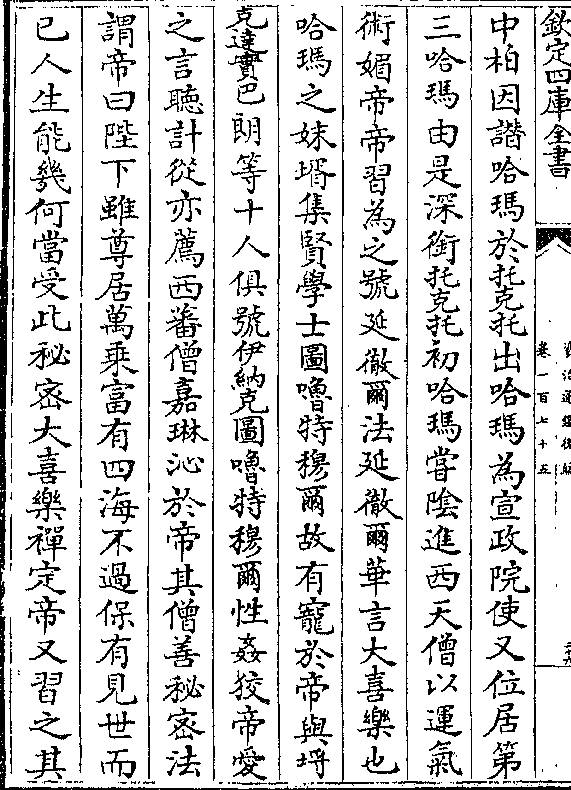 欽定四庫全書
卷一百七十五
中柏因譛哈瑪於托克托出哈瑪為宣政院使又位居第
三哈瑪由是深銜托克托初哈瑪嘗陰進西天僧以運氣
術媚帝帝習為之號延徹爾法延徹爾華言大喜樂也
哈瑪之妹壻集賢學士圖嚕特穆爾故有寵於帝與埒
克達實巴朗等十人俱號伊納克圖嚕特穆爾性姦狡帝愛
之言聽計從亦薦西蕃僧嘉琳沁於帝其僧善秘密法
謂帝曰陛下雖尊居萬乘富有四海不過保有見世而
已人生能幾何當受此秘密大喜樂禪定帝又習之其